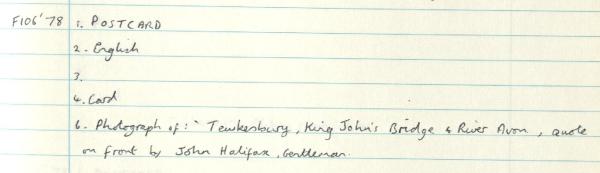 F106'78 1. POSTCARD
2. English
3.
4. Card
6. Photograph of:- Tewkesbury, King John's Bridge & River Avon, quote
on front by John Halifax, Gentleman.